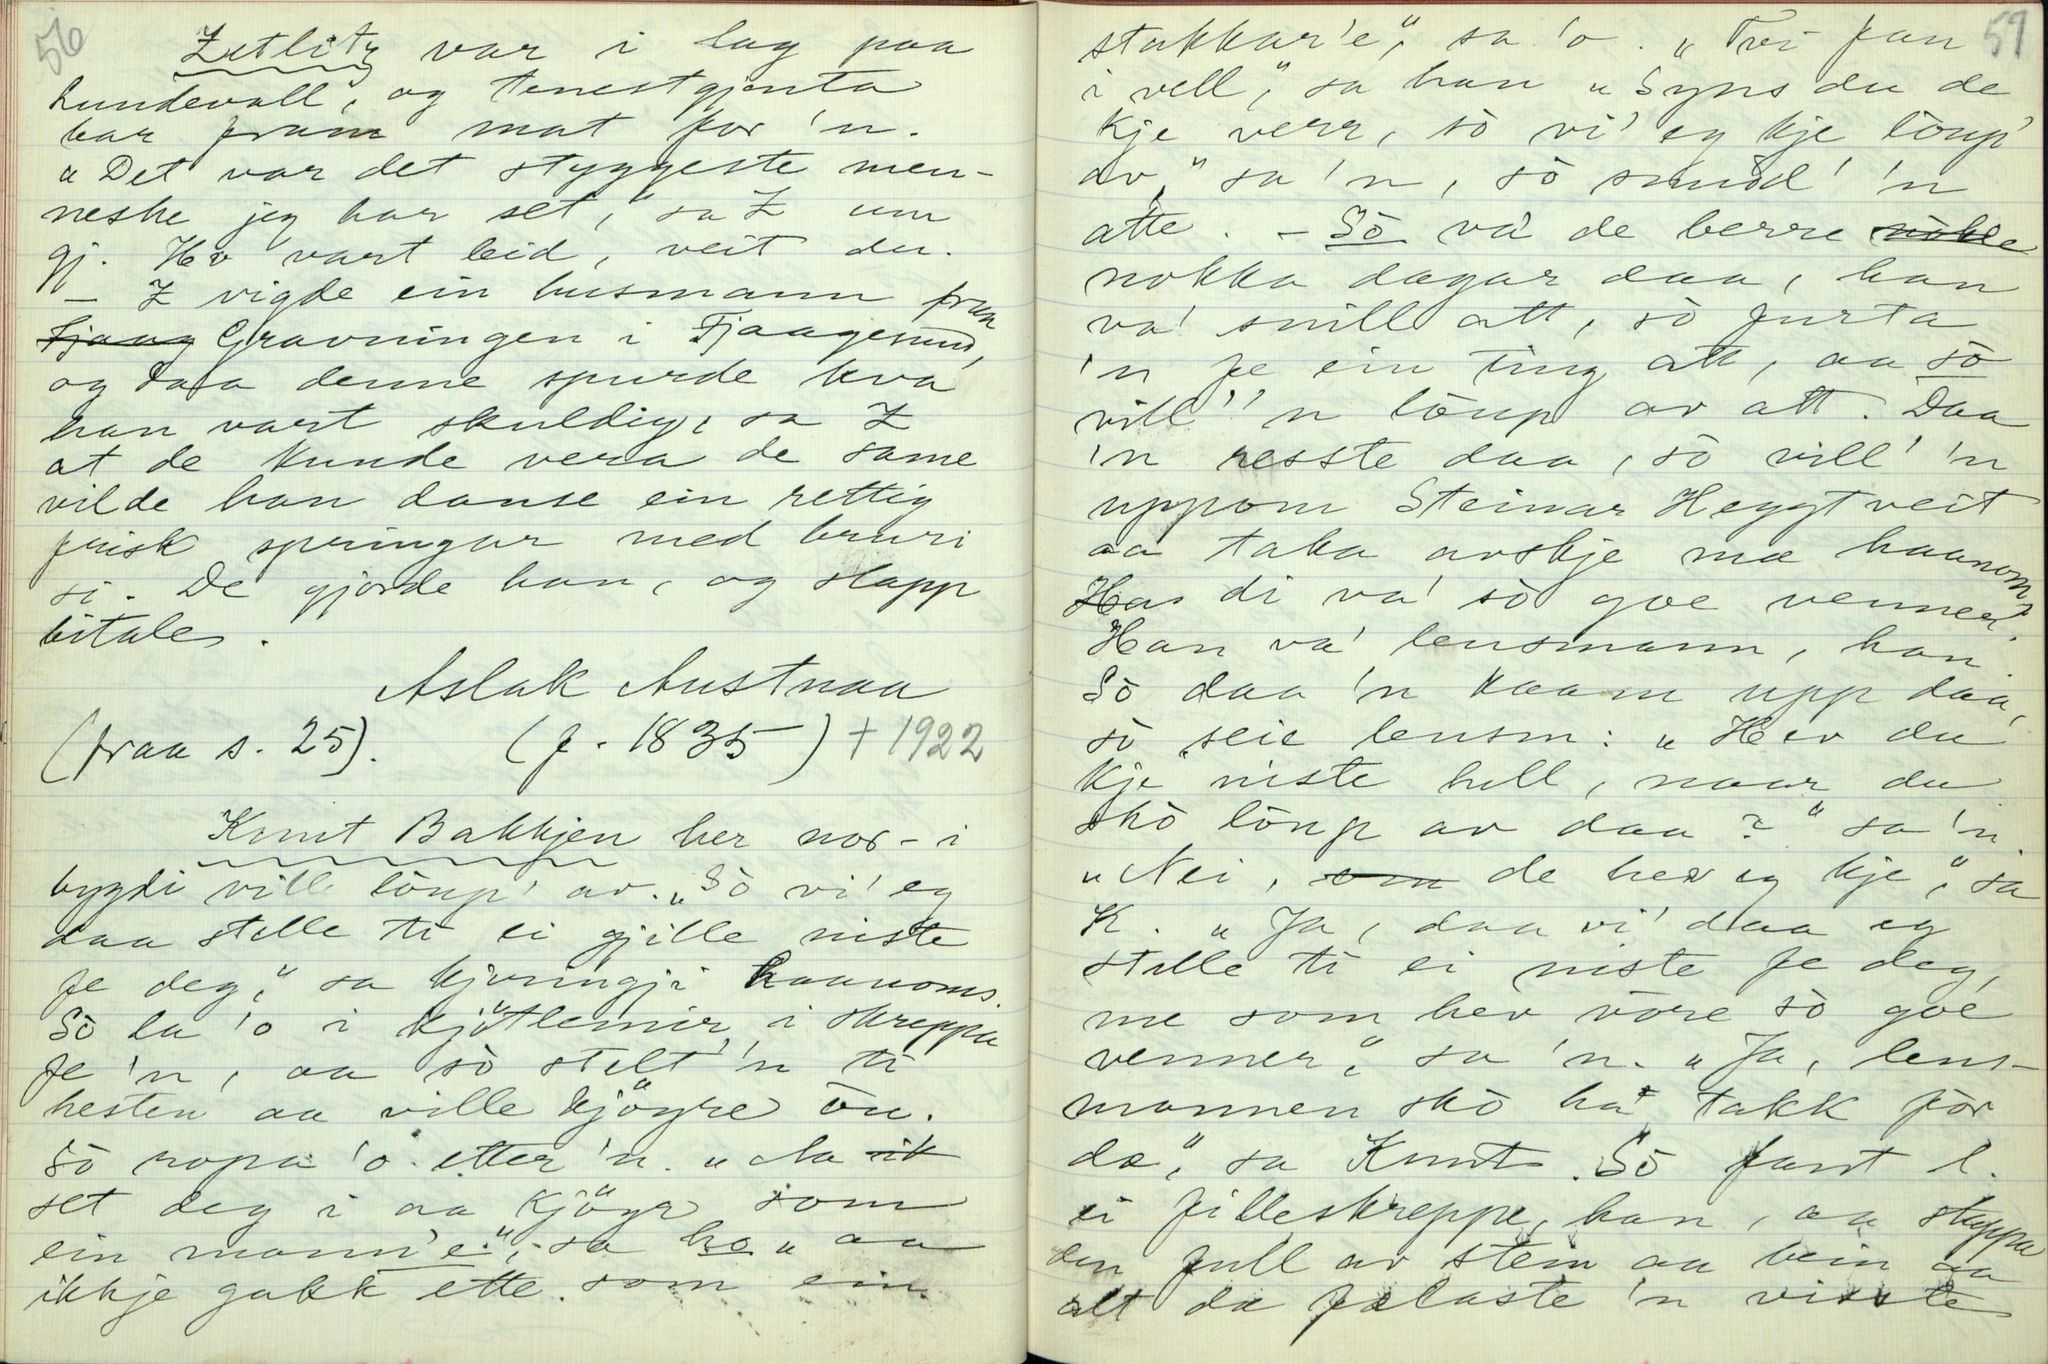 56
Zetlitz var i lag paa
Lundevall, og tenestgjenta
bar fram mat for 'n.
„Det var det styggeste men-
neske jeg har set," sa Z um
gj. Ho vart leid, veit du.
– Z vigde ein husmann fraa
Fjaag Gravningen i Fjaagesund,
og daa denne spurde kva
han vart skuldig, sa Z
at de kunde vera de same
vilde han danse ein rettig
frisk springar med bruri
si. De gjorde han, og slapp
bitale.
Aslak Austnaa
(fraa s. 25). (f. 1835) + 1922
Knut Bakkjen her nor-i
bygdi ville löup' av. „Sò vi' eg
daa stelle ti ei gjille niste
fe deg," sa kjeringji haanoms.
Sò la 'o i kjötlemir i skreppa
fe 'n, aa sò stelt' 'n ti
hesten aa ville kjöyre òu.
Sò ropa 'o etter 'n. „Aa ik
set deg i aa kjöyr som
ein mann'e", sa ho „aa
ikkje gakk ette som ein
57
stakkar'e", sa 'o. „Tvi fan
i vell," sa han „Syns du de
kje verr, sò vi' eg kje löup'
av," sa 'n, sò snudd' 'n
atte. – Sò va' de berre nòkle
nokka dagar daa, han
va' snill att, sò furta
'n fe ein ting att, aa sò
vill' 'n löup av att. Daa
'n resste daa, sò vill' 'n
uppom Steinar Heggtveit
aa taka avskje mæ haanom,
Han di va' sò goe venner.
Han va' lensmann, han.
Sò daa 'n kaam upp daa,
sò seie lensm: „Hev du
kje niste hell, naar du
skò löup av daa?" sa 'n.
„Nei, om de hev eg kje," sa
K. „Ja, daa vi' daa eg
stelle ti ei niste fe deg,
me som hev vòre sò goe
venner," sa 'n. „Ja, lens-
mannen skò ha' takk fòr
dæ," sa Knut. Sò fant l.
ei filleskreppe, han, aa stappa
den full av stein aa bein aa
alt de falaste 'n visste